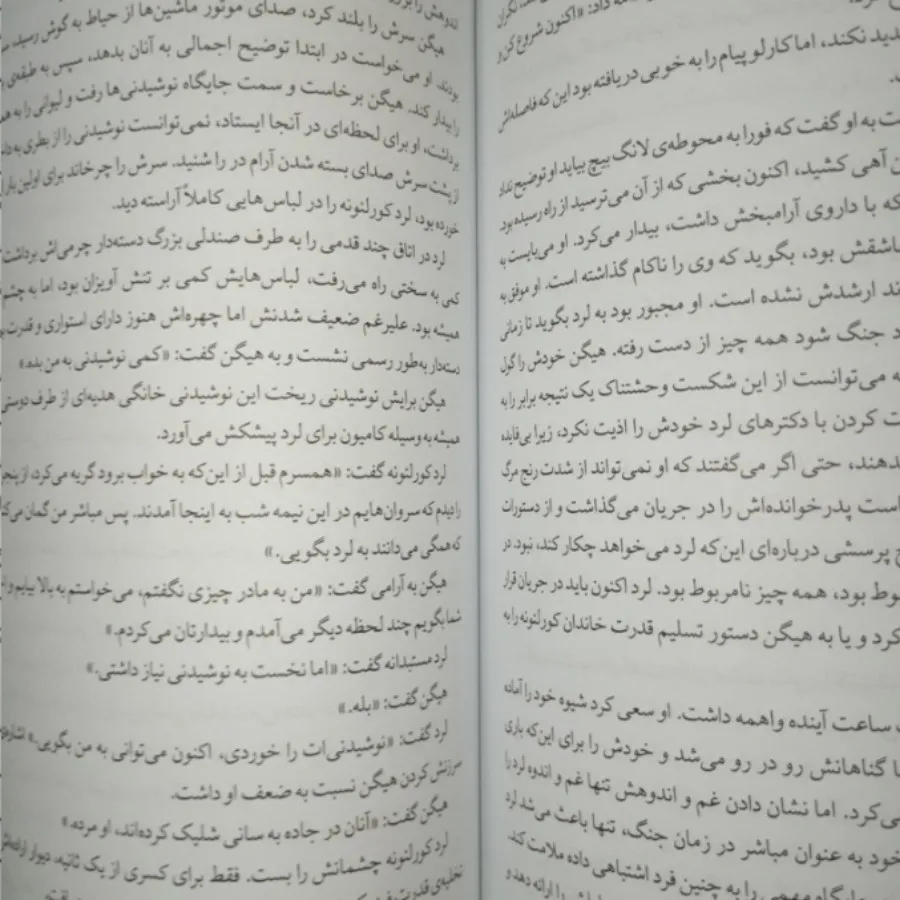 دید نکند، اما کارلو پیام را به خوبی دریافته بود این که فاصله‌اش
ت به او گفت که فورا به محوطه‌ی لانگ بیچ بیاید او توضیح نداد
ن آهی کشید، اکنون بخشی که از آن می‌ترسید از راه رسیده بود.
که با داروی آرامبخش داشت، بیدار می‌کرد. او می‌بایست به
اشقش بود، بگوید که وی را ناکام گذاشته است. او موفق به
ند ارشدش نشده است. او مجبور بود به لرد بگوید تا زمانی
د جنگ شود همه چیز از دست رفته. هیگن خودش را گول
ه می‌توانست از این شکست وحشتناک یک نتیجه برابر را به
ت کردن با دکترهای لرد خودش را اذیت نکرد، زیرا بی‌فایده
دهند، حتی اگر می‌گفتند که او نمی‌تواند از شدت رنج مرگ
است پدرخوانده‌اش را در جریان می‌گذاشت و از دستورات
چ پرسشی درباره‌ای این‌که لرد می‌خواهد چکار کند، نبود. در
وط بود، همه چیز نامربوط بود. لرد اکنون باید در جریان قرار
کرد و یا به هیگن دستور تسلیم قدرت خاندان کورلئونه را به
ساعت آینده واهمه داشت. او سعی کرد شیوه خود را آماده
ا گناهانش رو در رو می‌شد و خودش را برای این‌که باری
ی‌کرد. اما نشان دادن غم و اندوهش تنها غم و اندوه لرد را
خود به عنوان مباشر در زمان جنگ، تنها باعث می‌شد لرد
جایگاه مهمی را به چنین فرد اشتباهی داده ملامت کند.
هیگن سرش را بلند کرد، صدای موتور ماشین‌ها از حیاط به گوش رسید،
بودند. او می‌خواست در ابتدا توضیح اجمالی به آنان بدهد، سپس به طبقه‌ی
را بیدار کند. هیگن برخاست و سمت جایگاه نوشیدنی‌ها رفت و لیوانی را به
برداشت، او برای لحظه‌ای در آنجا ایستاد، نمی‌توانست نوشیدنی را از بطری به
از پشت سرش صدای بسته شدن آرام در را شنید. سرش را چرخاند برای اولین بار
خورده بود، لرد کورلئونه را در لباس‌هایی کاملاً آراسته دید.
لرد در اتاق چند قدمی را به طرف صندلی بزرگ دسته‌دار چرمی‌اش برداشت
کی به سختی راه می‌رفت، لباس‌هایش کمی بر تنش آویزان بود، اما به چشم
همیشه بود. علیرغم ضعیف شدنش اما چهره‌اش هنوز دارای استواری و قدرت
دسته‌دار به‌طور رسمی نشست و به هیگن گفت: «کمی نوشیدنی به من بده.»
هیگن برایش نوشیدنی ریخت این نوشیدنی خانگی هدیه‌ای از طرف دوستی
همیشه به وسیله کامیون برای لرد پیشکش می‌آورد.
لرد کورلئونه گفت: «همسرم قبل از این‌که به خواب برود گریه می‌کرد، از
را دیدم که سروان‌هایم در این نیمه شب به اینجا آمدند. پس مباشر من گمان می‌
که همگی می‌دانند به لرد بگویی.»
هیگن به آرامی گفت: «من به مادر چیزی نگفتم، می‌خواستم به بالا بیایم و
شما بگویم چند لحظه دیگر می‌آمدم و بیدارتان می‌کردم.»
لرد مستبدانه گفت: «اما نخست به نوشیدنی نیاز داشتی.»
هیگن گفت: «بله.»
لرد گفت: «نوشیدنی‌ات را خوردی، اکنون می‌توانی به من بگویی.»
سرزنش کردن هیگن نسبت به ضعف او داشت.
هیگن گفت: «آنان در جاده به سانی شلیک کرده‌اند، او مرده.»
لرد کورلئونه چشمانش را بست. فقط برای کسری از یک ثانیه، دیوار